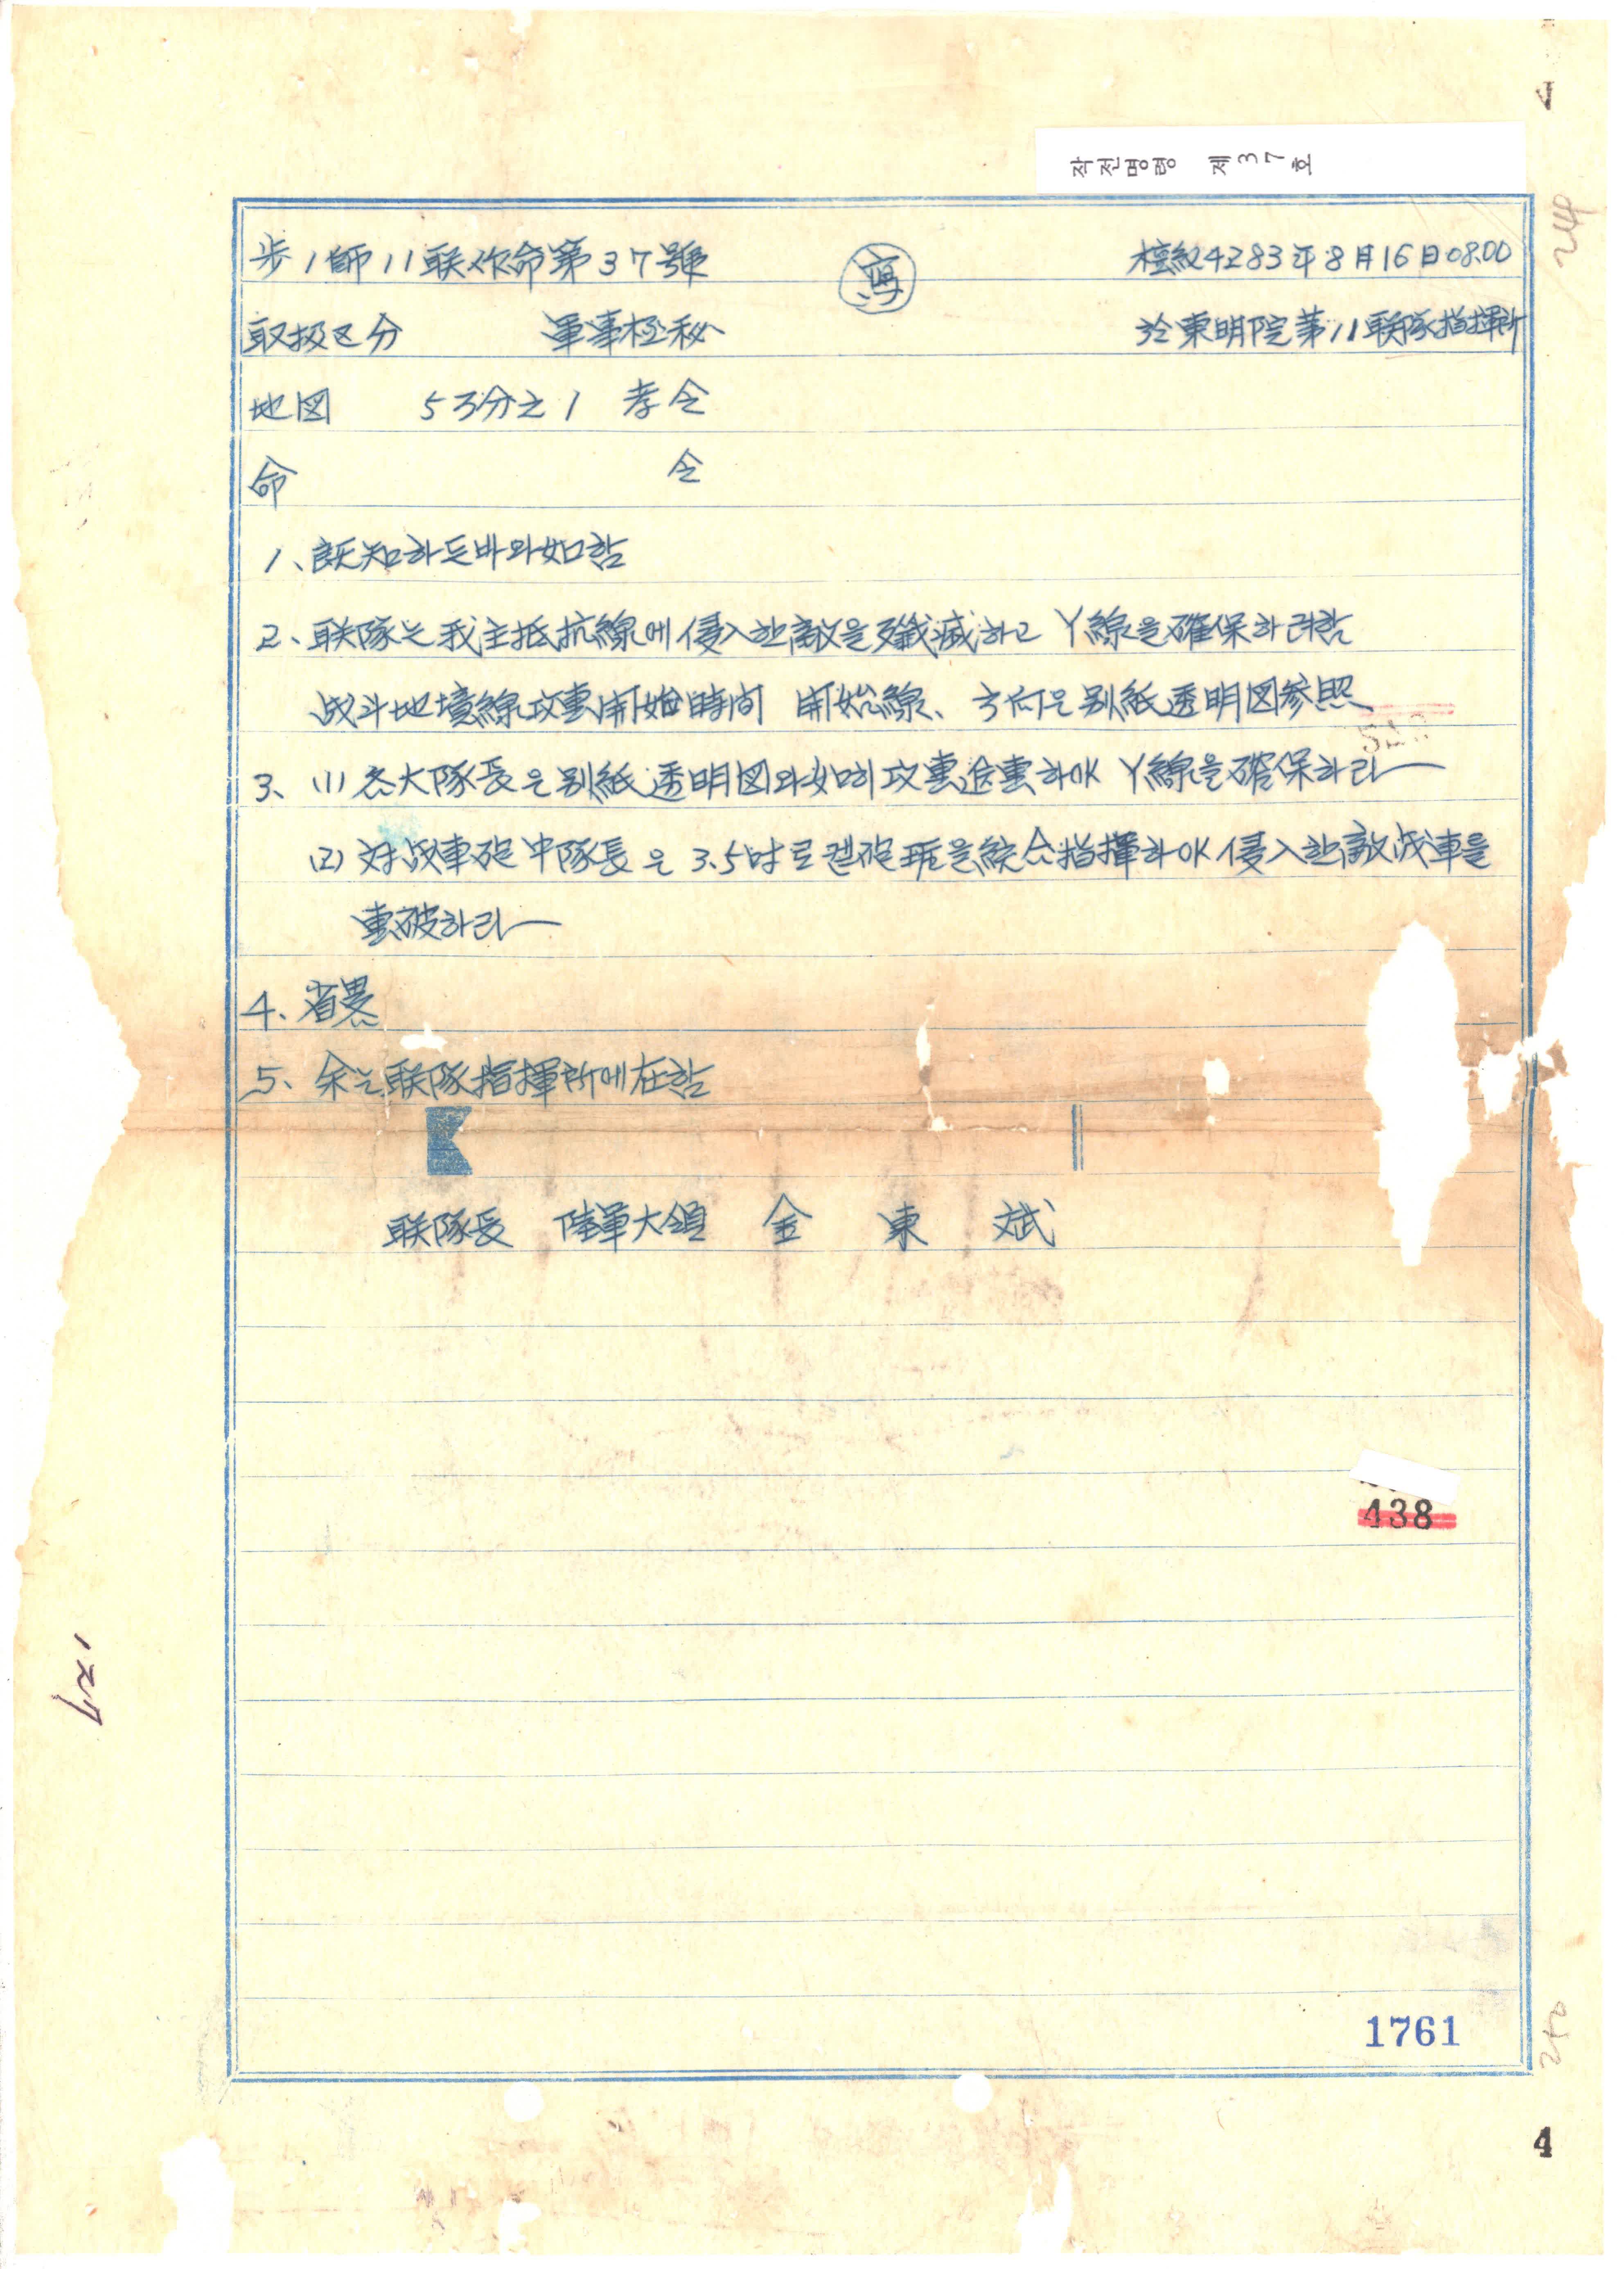 작전명령 제37호
步1師11联作命第37號 寫 檀紀4283年8月16日08.00
取扱区分 軍事極秘 於東明院第11联隊指揮所
地図 5万分之1 孝令
命 令
1、既知하는바와如함
2、联隊는我主抵抗線에侵入한敵을殲滅하고 Y線을確保하려함
战斗地境線攻擊開始時間 開始線、方向은別紙透明図參照
3、(1) 各大隊長은別紙透明図와如히攻擊進擊하여 Y線을確保하라
(2) 対战車砲中隊長은 3.5吋로켙砲班을綜合指揮하여侵入한敵战車를
擊破하라
4、省畧
5、余는联隊指揮所에在함
联隊長 陸軍大領 金東斌
438
1761
4
244
240